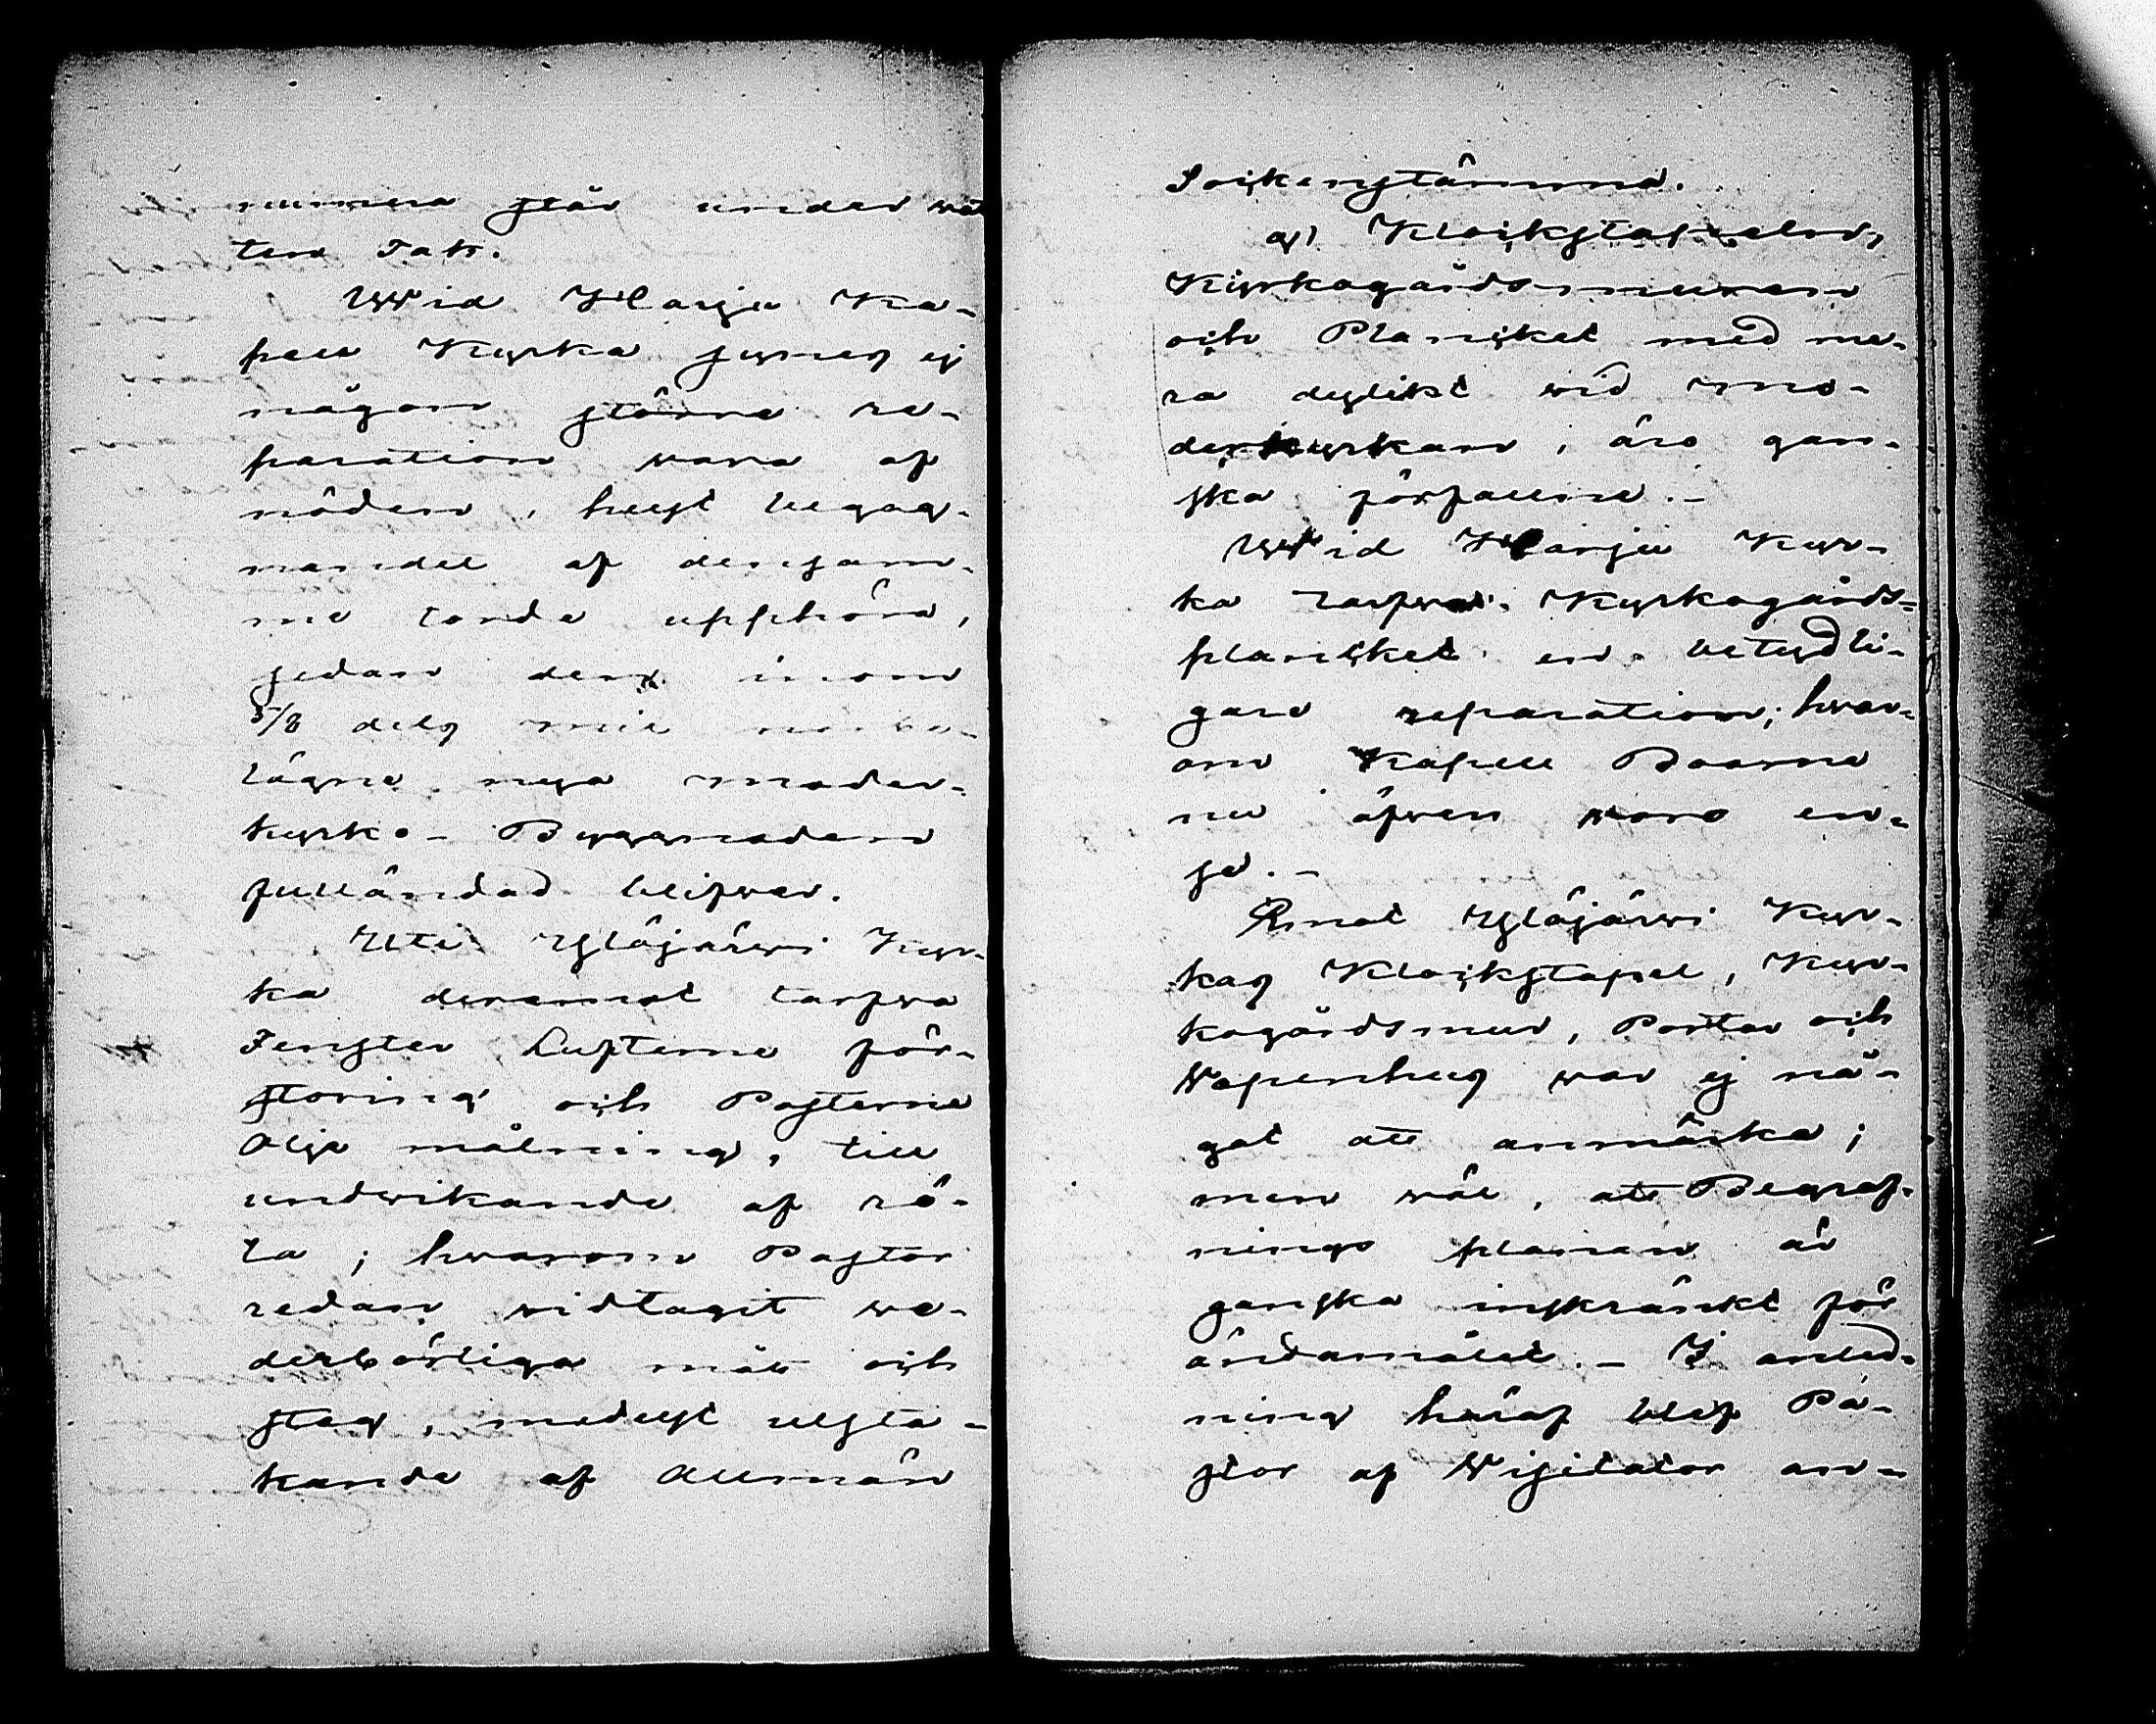 numera står under wat
ten Tak.
Wid Harju Ka-
pell Kyrka synes ej
någon större re-
paration wara af
nöden, helst begag-
nandet af densam-
me torde upphöra,
sedan den inom
5/8 dels mil när be-
lägne nya moder-
kyrko-Byggnaden
fulländad blifwer.
Uti Ylöjärwi Kyr-
ka deremot tarfwa
Fenster Lufterne för-
storing och Posterne
Olje målning, till
undwikande af rö-
ta; hwarom Pastor
redan widtagit we-
derbörliga mått och
steg, medelst utsta-
kande af Allmän
Sockenstämma.
g) Klockstapeln,
Kyrkogårdsmuren
och Planket med me-
ra dylikt wid mo-
derkyrkan, äro gan-
ska förfallne.-
Wid Harju Kyr-
ka tarfwar Kyrkogårds-
planket en betydli-
gare reparation; hwar-
om Kapell Boarne
nu äfwen woro en-
se.-
Emot Ylöjärwi Kyr-
kas Klockstapel, Kyr-
kogårdsmur, Portar och
Wapenhus war ej nå-
got att anmärka;
men wäl, att Begraf-
nings planen är
ganska inskränkt för
ändamålet.- I anled-
ning häraf blef Pa-
stor af Wisitator an-